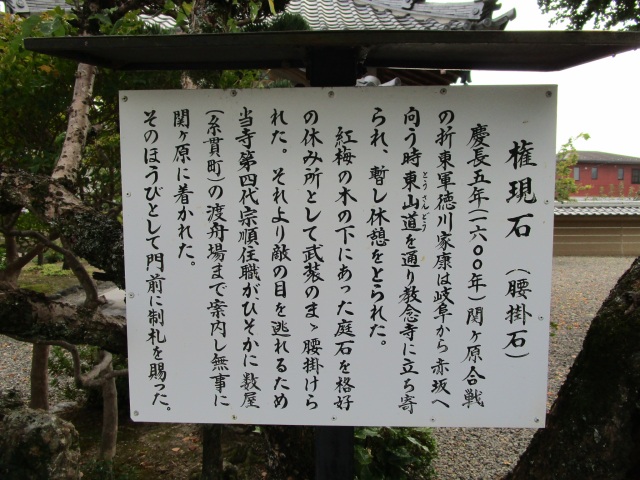 権現石（腰掛石）
慶長五年（一六〇〇年）関ヶ原合戦
の折東軍徳川家康は岐阜から赤坂へ
向う時東山道を通り教念寺に立ち寄
とうさんどう
られ、暫し休憩をとられた。
紅梅の木の下にあった庭石を格好
の休み所として武装のまゝ腰掛けら
れた。それより敵の目を逃れるため
当寺第四代宗順住職がひそかに数屋
（糸貫町）の渡舟場まで案内し無事に
関ヶ原に着かれた。
そのほうびとして門前に制札を賜った。